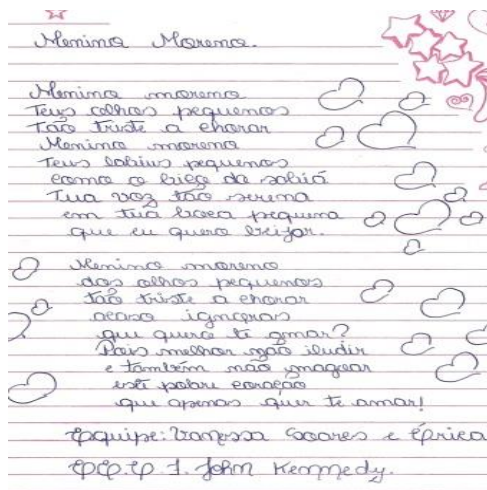 Menina Morena.
Menina morena
Teus olhos pequenos
Tão triste a chorar
Menina morena
Teus labius pequenos
como o biço do sabiá
Tua voz tão serena
em tua boca pequena
que eu quero beijar.
Menina morena
dos olhos pequenos
tão triste a chorar
acaso ignoras
que quero te amar?
Pois melhor não iludir
e também não magoar
este pobre coração
que apenas quer te amar!
Equipe: Vanessa Soares e Érica
J. John Kennedy.